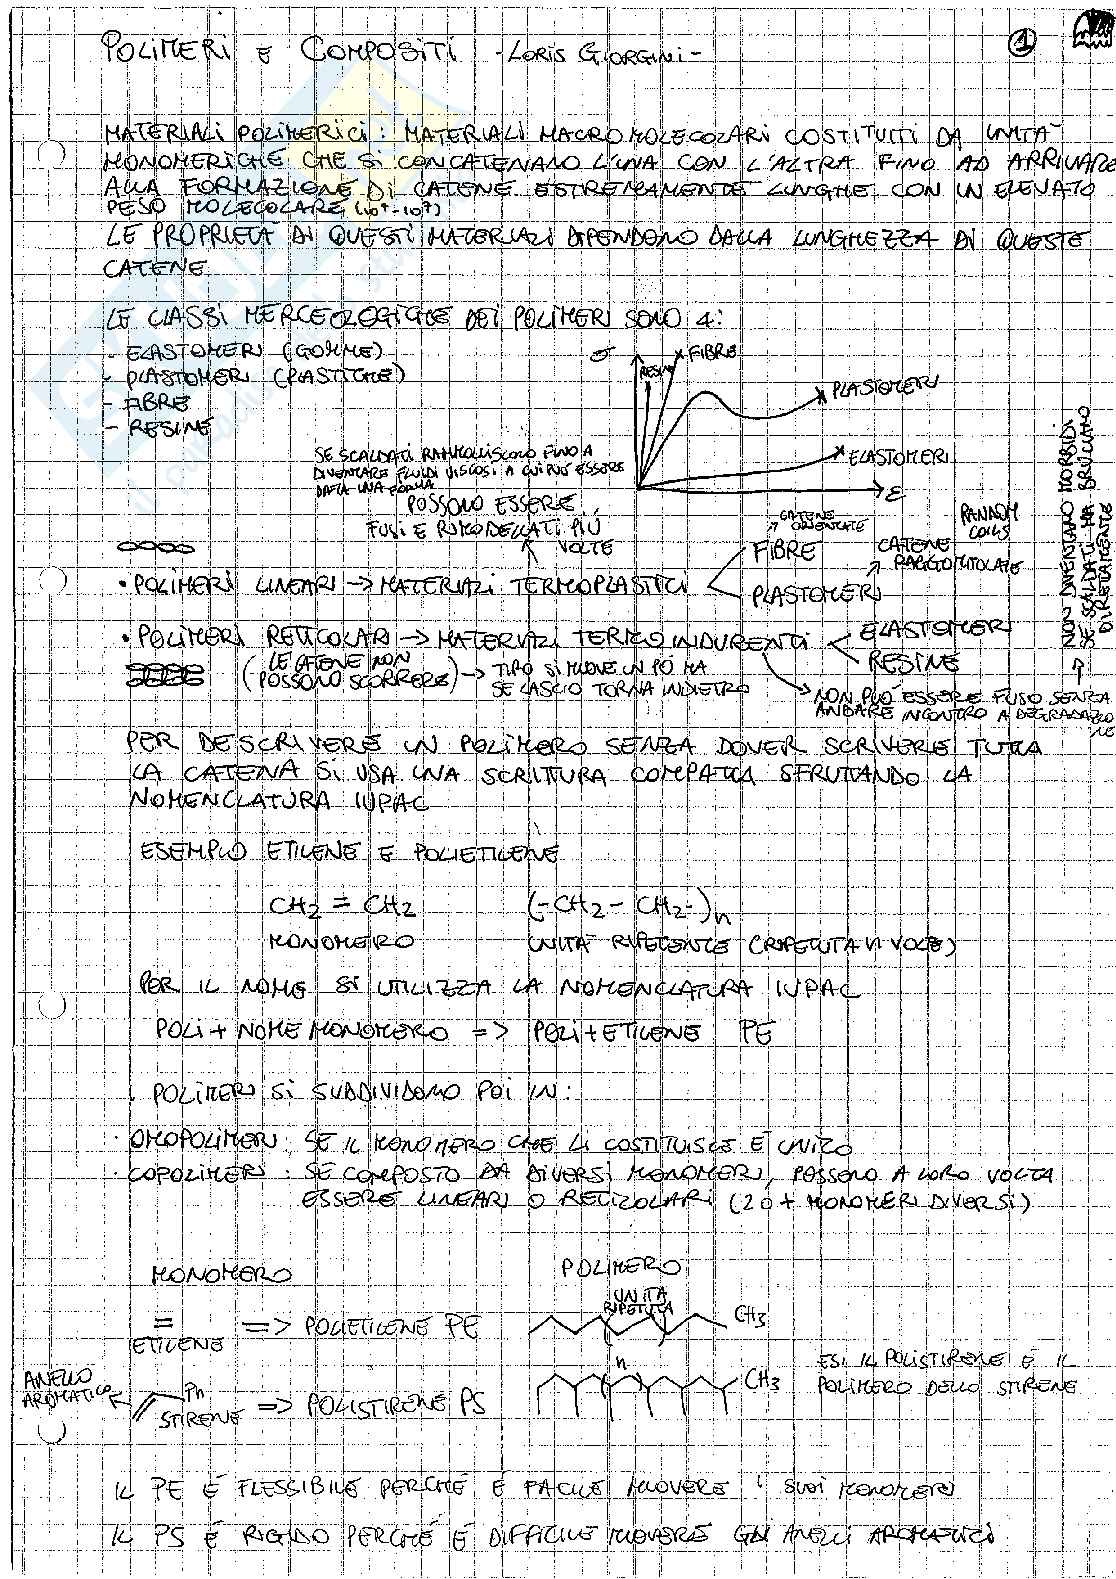 POLIMERI E COMPOSITI - LORIS GIORGINI -
1
MATERIALI POLIMERICI: MATERIALI MACROMOLECOLARI COSTITUITI DA UNITÀ
MONOMERICHE CHE SI CONCATENANO L'UNA CON L'ALTRA FINO AD ARRIVARE
ALLA FORMAZIONE DI CATENE ESTREMAMENTE LUNGHE CON UN ELEVATO
PESO MOLECOLARE
LE PROPRIETÀ DI QUESTI MATERIALI DIPENDONO DALLA LUNGHEZZA DI QUESTE
CATENE
LE CLASSI MERCEOLOGICHE DEI POLIMERI SONO 4:
- ELASTOMERI (GOMME)
- PLASTOMERI (PLASTICHE)
- FIBRE
- RESINE
σ
RESINE
FIBRE
PLASTOMERI
ELASTOMERI
ε
SE SCALDATI RAMMOLLISCONO FINO A
DIVENTARE FLUIDI VISCOSI A CUI PUÒ ESSERE
DATA UNA FORMA
POSSONO ESSERE
FUSI E RIMODELLATI PIÙ
VOLTE
CATENE
ORIENTATE
RANDOM
COILS
FIBRE
CATENE
RAGGOMITOLATE
• POLIMERI LINEARI -> MATERIALI TERMOPLASTICI
PLASTOMERI
• POLIMERI RETICOLARI -> MATERIALI TERMOINDURENTI
ELASTOMERI
RESINE
(LE CATENE NON
POSSONO SCORRERE) -> TIRO SI MUOVE UN PÒ MA
SE LASCIO TORNA INDIETRO
NON PUÒ ESSERE FUSO SENZA
ANDARE INCONTRO A DEGRADAZIO
NE
NON DIVENTANO MORBIDI
SE SCALDATI MA BRUCIANO
DIRETTAMENTE
PER DESCRIVERE UN POLIMERO SENZA DOVER SCRIVERE TUTTA
LA CATENA SI USA UNA SCRITTURA COMPATTA SFRUTTANDO LA
NOMENCLATURA IUPAC
ESEMPIO ETILENE E POLIETILENE
CH2 = CH2 (-CH2 - CH2-)n
MONOMERO UNITÀ RIPETENTE (RIPETUTA N VOLTE)
PER IL NOME SI UTILIZZA LA NOMENCLATURA IUPAC
POLI + NOME MONOMERO => POLI + ETILENE PE
I POLIMERI SI SUDDIVIDONO POI IN:
· OMOPOLIMERI: SE IL MONOMERO CHE LI COSTITUISCE È UNICO
· COPOLIMERI: SE COMPOSTO DA DIVERSI MONOMERI, POSSONO A LORO VOLTA
ESSERE LINEARI O RETICOLARI (2 O + MONOMERI DIVERSI)
MONOMERO POLIMERO
UNITÀ
RIPETUTA
ETILENE => POLIETILENE PE CH3
n
ANELLO
AROMATICO
Ph
STIRENE => POLISTIRENE PS CH3
ES: IL POLISTIRENE È IL
POLIMERO DELLO STIRENE
IL PE È FLESSIBILE PERCHÉ È FACILE MUOVERE I SUOI MONOMERI
IL PS È RIGIDO PERCHÉ È DIFFICILE MUOVERE GLI ANELLI AROMATICI